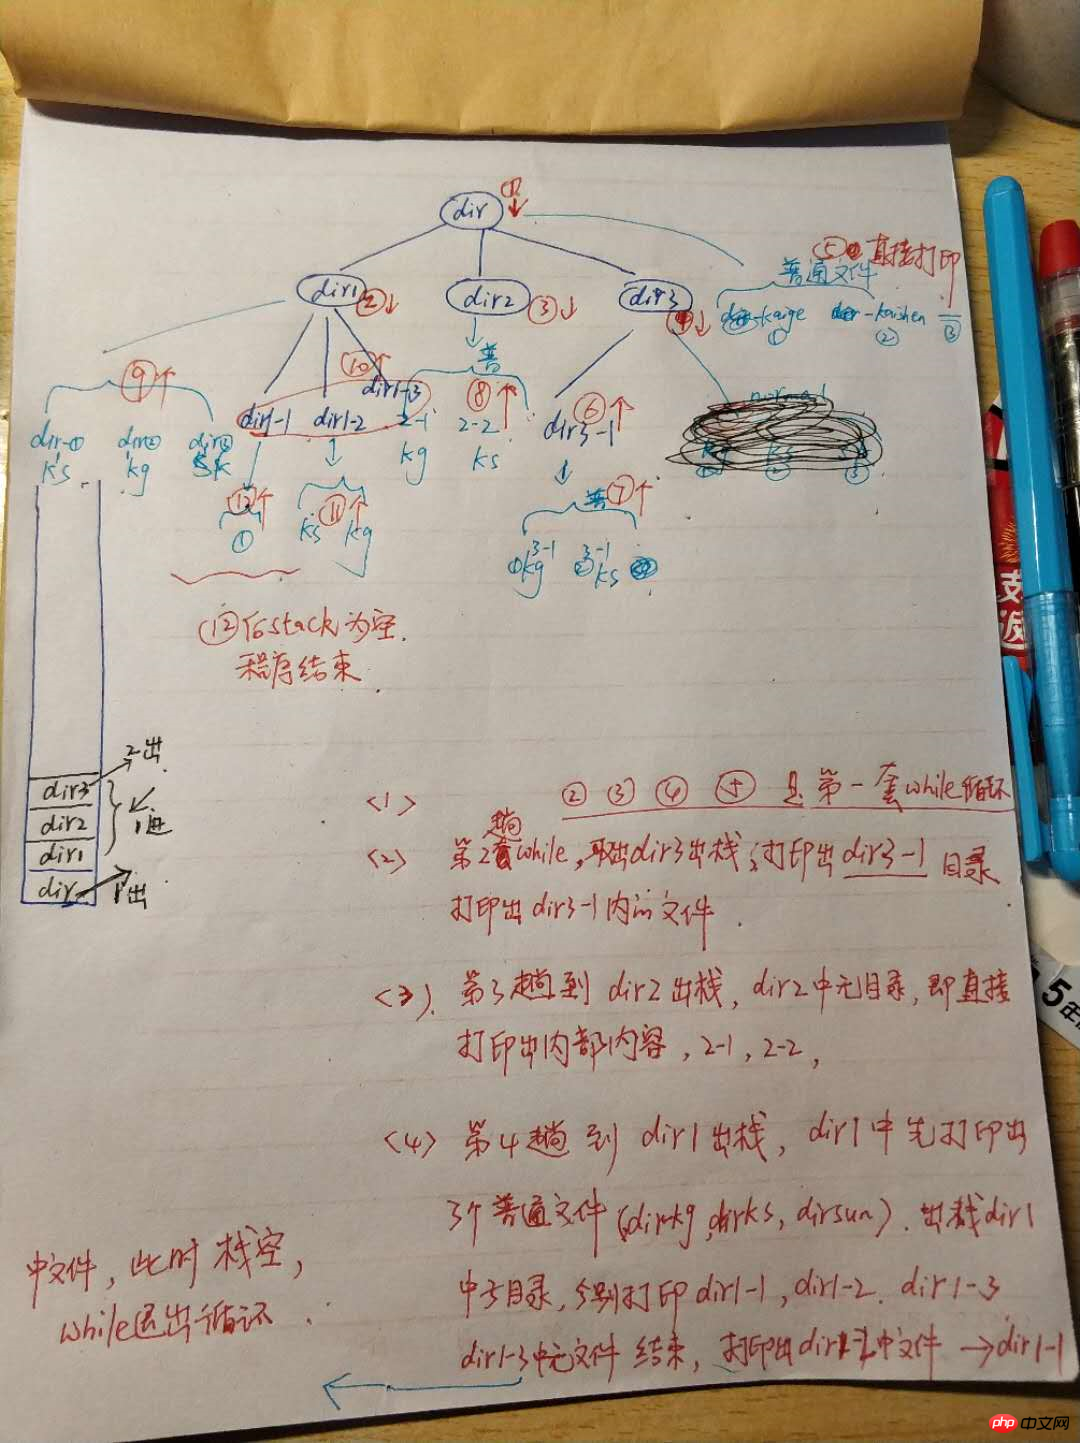 dir ①↓
⑤ 直接打印
普通文件
dir1 ②↓ dir2 ③↓ dir3 ④↓
-kaige ① -kaishen ② ③
普
⑨↑ ⑩↑ ⑧↑ ⑥↑
dir1-1 dir1-2 dir1-3 2-1 2-2 dir3-1
dir① dir② dir③
ks kg
kg ks
⑫↑ ⑪↑ 普 ⑦↑
① ks kg
3-1 3-1
①kg ②ks
⑫后stack为空.
程序结束
2出
dir3
dir2 1进
dir1
dir 1出
<1> ② ③ ④ ⑤ 是第一套while循环
<2> 第2趟while, 取出dir3出栈; 打印出dir3-1目录
打印出dir3-1内的文件.
<3>. 第3趟到 dir2出栈, dir2中无目录, 即直接
打印出内部内容, 2-1, 2-2,
<4> 第4趟到 dir1出栈, dir1中先打印出
3个普通文件(dirkg, dirks, dirsun). 出栈dir1
中子目录, 分别打印dir1-1, dir1-2. dir1-3
dir1-3中无文件 结束, 打印出dir1-2中文件 →dir1-1
中文件, 此时栈空,
while退出循环.
5年
php 中文网